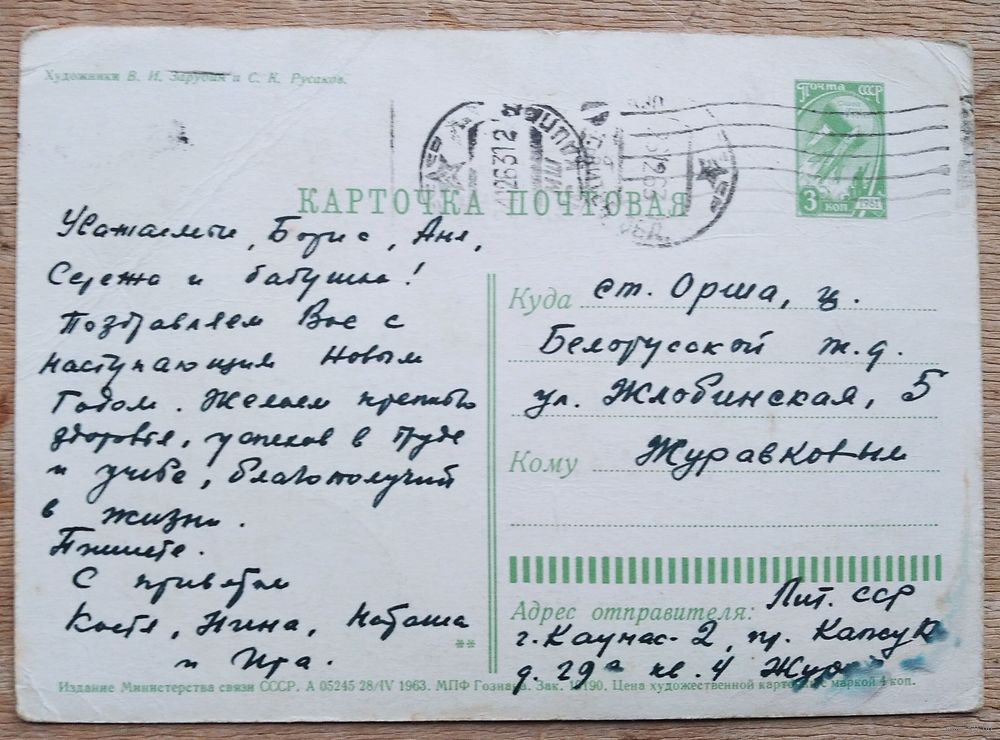 Художники В. И. Зарубин и С. К. Русаков.
Почта СССР
3 коп. 1961
КАРТОЧКА ПОЧТОВАЯ
Уважаемые, Борис, Аня,
Сережа и бабушка!
Поздравляем Вас с
наступающим Новым
Годом. Желаем
здоровья, успехов в труде
и учебе, благополучий
в жизни.
Пишите.
С приветом
Костя, Нина, Наташа
и Ира.
**
Куда ст. Орша, ц.
Белорусской ж.д.
ул. Жлобинская, 5
Кому Журавковым
Адрес отправителя: Лит. ССР
г. Каунас-2, пр.
д. 29а кв. 4
Издание Министерства связи СССР. А 05245 28/IV 1963. МПФ Гознака. Зак. Цена художественной карточки с маркой 4 коп.